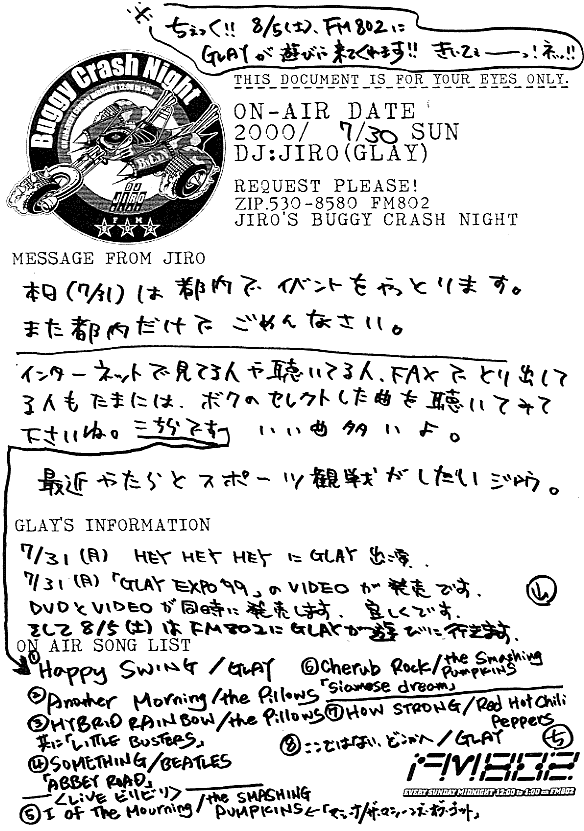 ※ ちぇっく!! 8/5(土)、FM802に
GLAYが遊びに来てくれます!! きいてねーーっ!ネッ!!
Buggy Crash Night
DJ
JIRO
FM
802
THIS DOCUMENT IS FOR YOUR EYES ONLY.
ON-AIR DATE
2000/ 7/30 SUN
DJ:JIRO(GLAY)
REQUEST PLEASE!
ZIP.530-8580 FM802
JIRO'S BUGGY CRASH NIGHT
MESSAGE FROM JIRO
本日(7/31)は都内でイベントをやっとります。
また都内だけでごめんなさい。
インターネットで見てる人や聴いてる人、FAXでとり出して
る人もたまには、ボクのセレクトした曲を聴いてみて
下さいね。こちらです いい曲多いよ。
最近やたらとスポーツ観戦がしたいジロウ。
GLAY'S INFORMATION
7/31(月) HEY HEY HEY に GLAY 出演.
7/31(月)「GLAY EXPO '99」のVIDEOが発売です.
DVDとVIDEOが同時に発売します. 宜しくです.
そして 8/5(土)はFM802にGLAYが遊びに行きます.
ON AIR SONG LIST
① Happy SWING / GLAY
② Another Morning / the Pillows
③ HYBRID RAINBOW / the Pillows
共に「LITTLE BUSTERS」
④ SOMETHING / BEATLES
「ABBEY ROAD」
<LIVE ビリビリ>
⑤ I of The Mourning / the SMASHING PUMPKINS ←「マシーナ/ザ・マシーンズ・オブ・ゴッド」
⑥ Cherub Rock / the Smashing Pumpkins
「Siamese dream」
⑦ HOW STRONG / Red Hot Chili Peppers
⑧ ここではない、どこかへ / GLAY
FM802
EVERY SUNDAY MIDNIGHT 12:00 to 1:00 on FM802